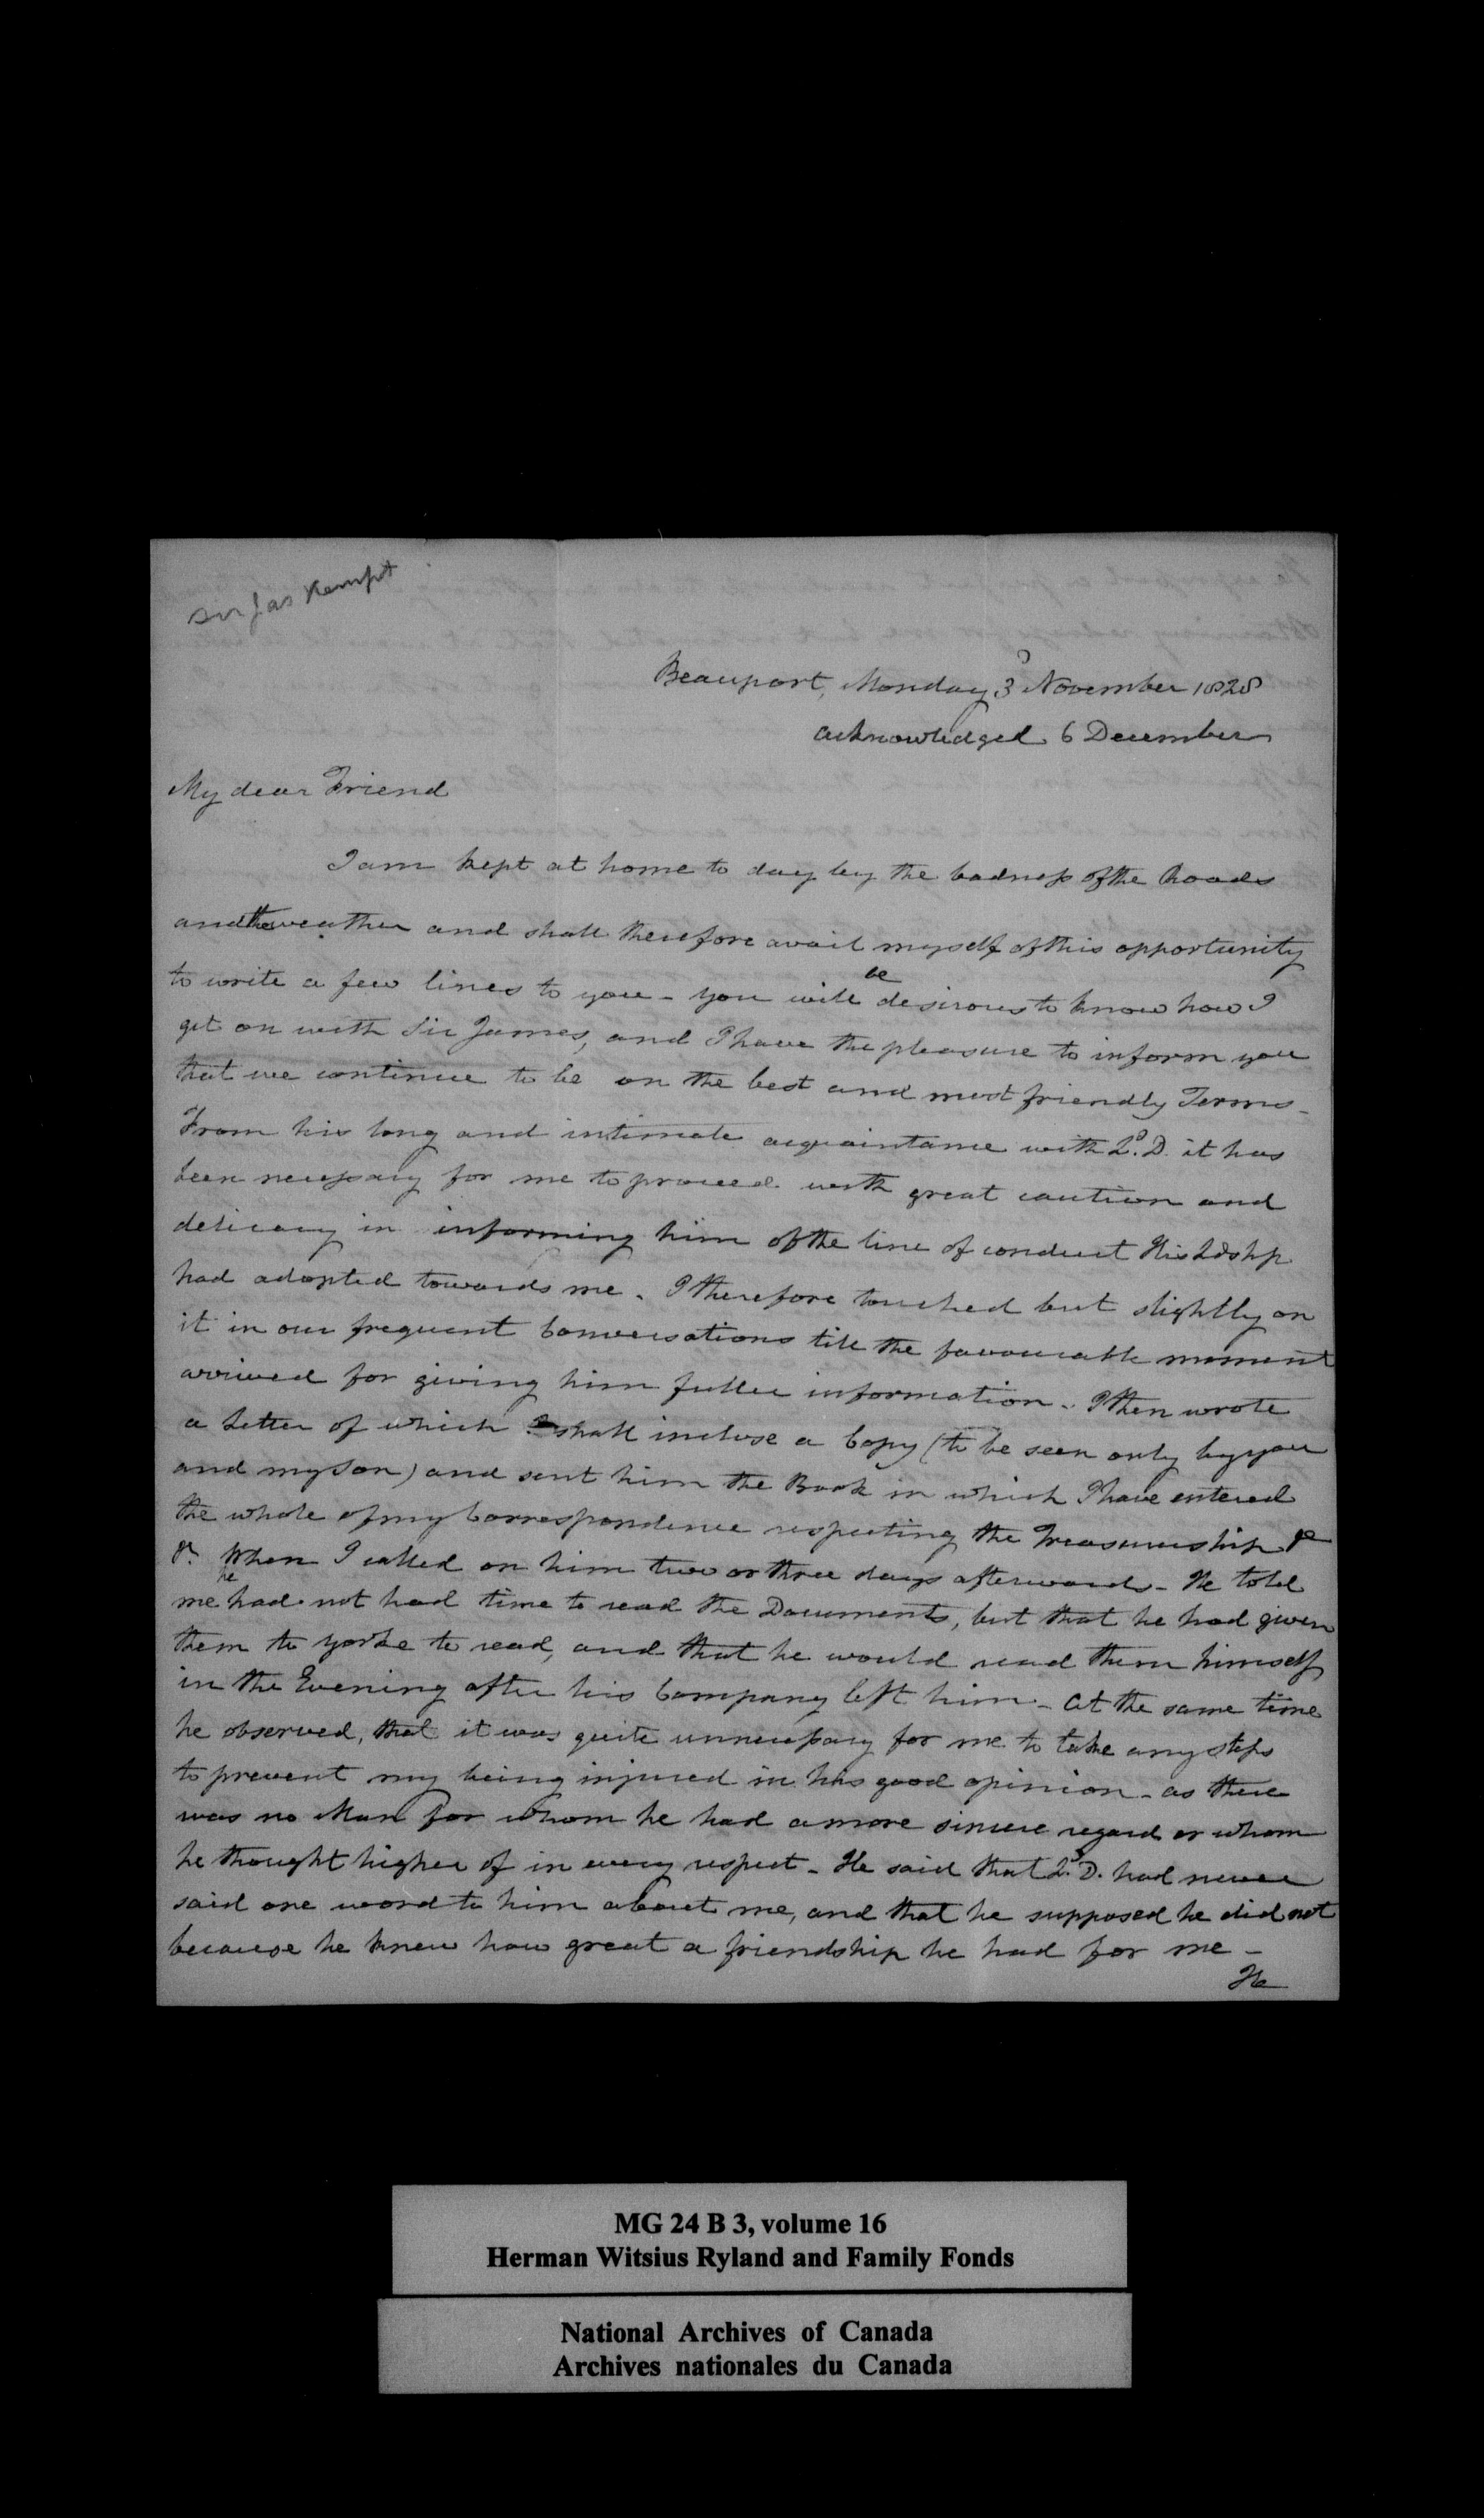 Sir Jas Kempt
Beauport, Monday 3d November 1828
acknowledged 6 December
My dear Friend
I am kept at home to day by the badness of the Roads
and the weather and shall therefore avail myself of this opportunity
to write a few lines to you - you will be desirous to know how I
get on with Sir James, and I have the pleasure to inform you
that we continue to be on the best and most friendly Terms -
From his long and intimate acquaintance with Ld. D. it has
been necessary for me to proceed with great caution and
delicacy in informing him of the line of conduct His Ldship
had adopted towards me. I therefore touched but slightly on
it in our frequent Conversations till the favourable moment
arrived for giving him fuller information. I then wrote
a Letter of which I shall inclose a Copy (to be seen only by you
and my Son) and sent him the Book in which I have entered
the whole of my Correspondence respecting the Treasurership &c
&c. When I called on him two or three days afterwards - He told
me he had not had time to read the Documents, but that he had given
them to Yorke to read, and that he would read them himself
in the Evening after his Company left him - At the same time
he observed, that it was quite unnecessary for me to take any steps
to prevent my being injured in his good opinion - as there
was no Man for whom he had a more sincere regard or whom
he thought higher of in every respect - He said that Ld. D. had never
said one word to him about me, and that he supposed he did not
because he knew how great a friendship he had for me -
He
MG 24 B 3, volume 16
Herman Witsius Ryland and Family Fonds
National Archives of Canada
Archives nationales du Canada